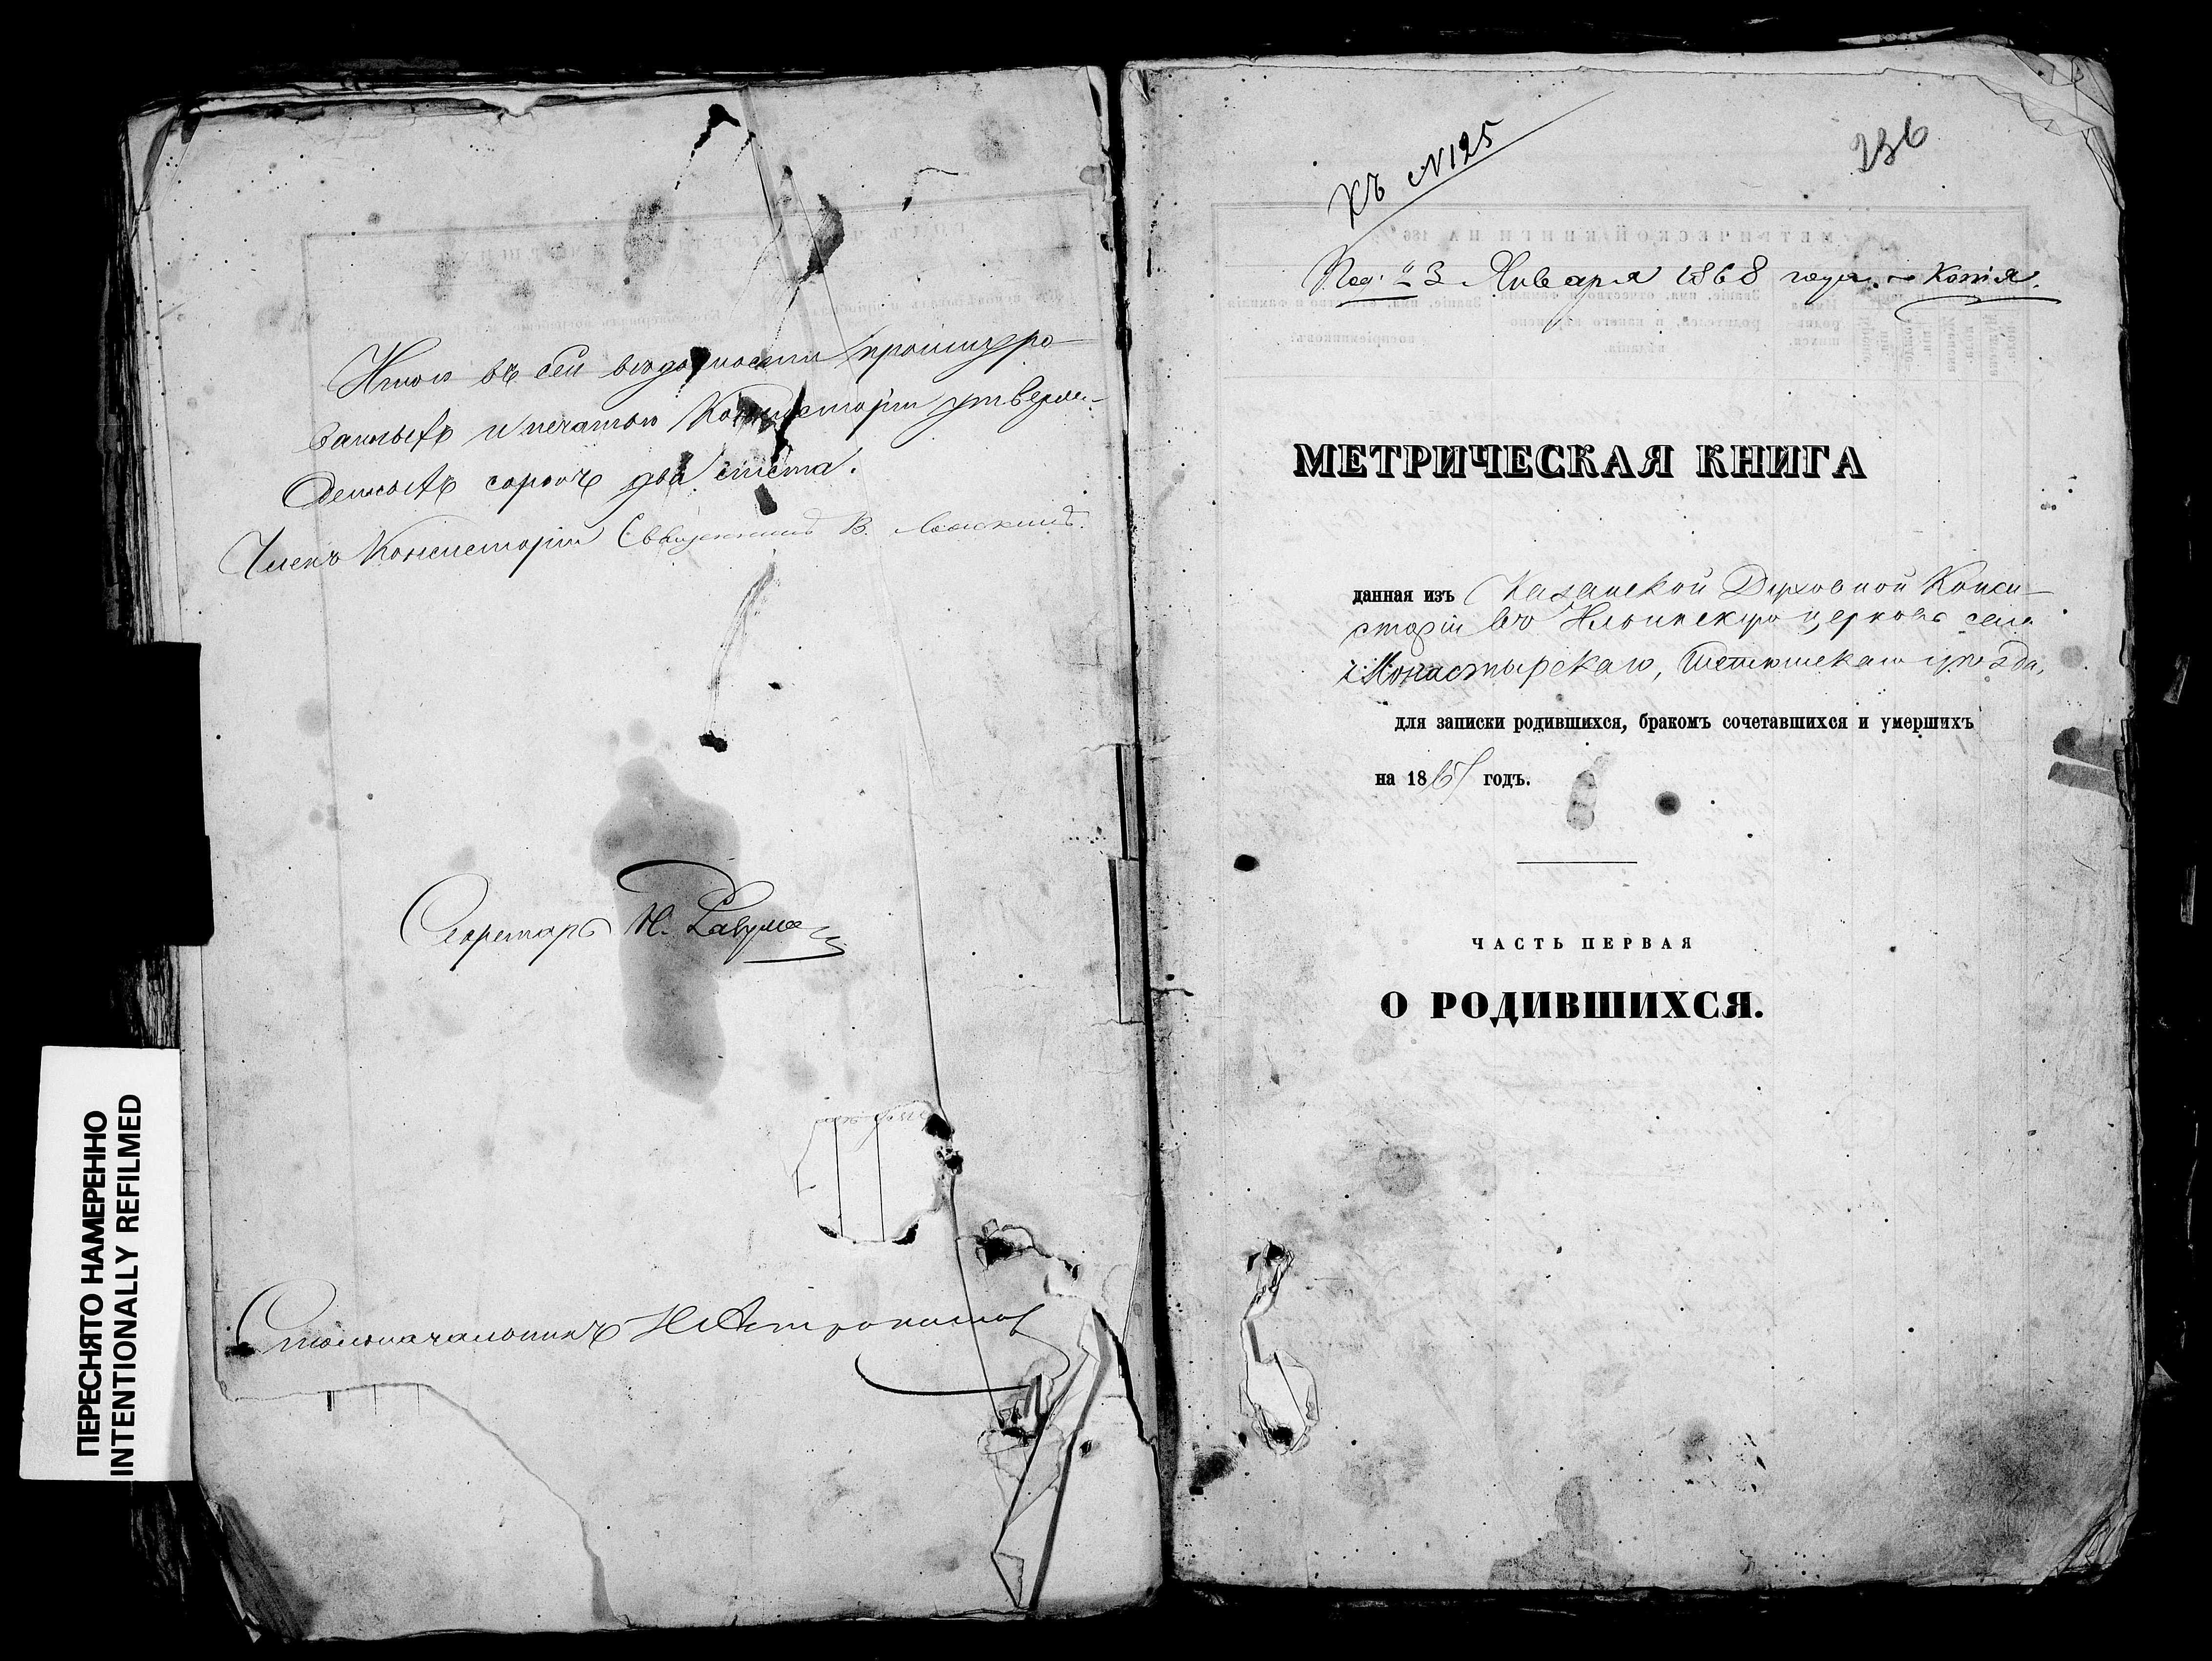 Итого въ сей вѣдомости прошнуро-
ванныхъ и печатью Консисторіи утверж-
денныхъ сорокъ два листа.
Членъ Консисторіи Священникъ В.
Секретарь Н.
Столоначальникъ Н
ПЕРЕСНЯТО НАМЕРЕННО
INTENTIONALLY REFILMED
236
Къ №125
Под. 3 Января 1868 года. Копія.
МЕТРИЧЕСКАЯ КНИГА
данная изъ Казанской Духовной Конси-
сторіи въ Ильинскую церковь села
Монастырскаго, Тетюшскаго уѣзда,
для записки родившихся, бракомъ сочетавшихся и умершихъ
на 1867 годъ.
ЧАСТЬ ПЕРВАЯ
О РОДИВШИХСЯ.